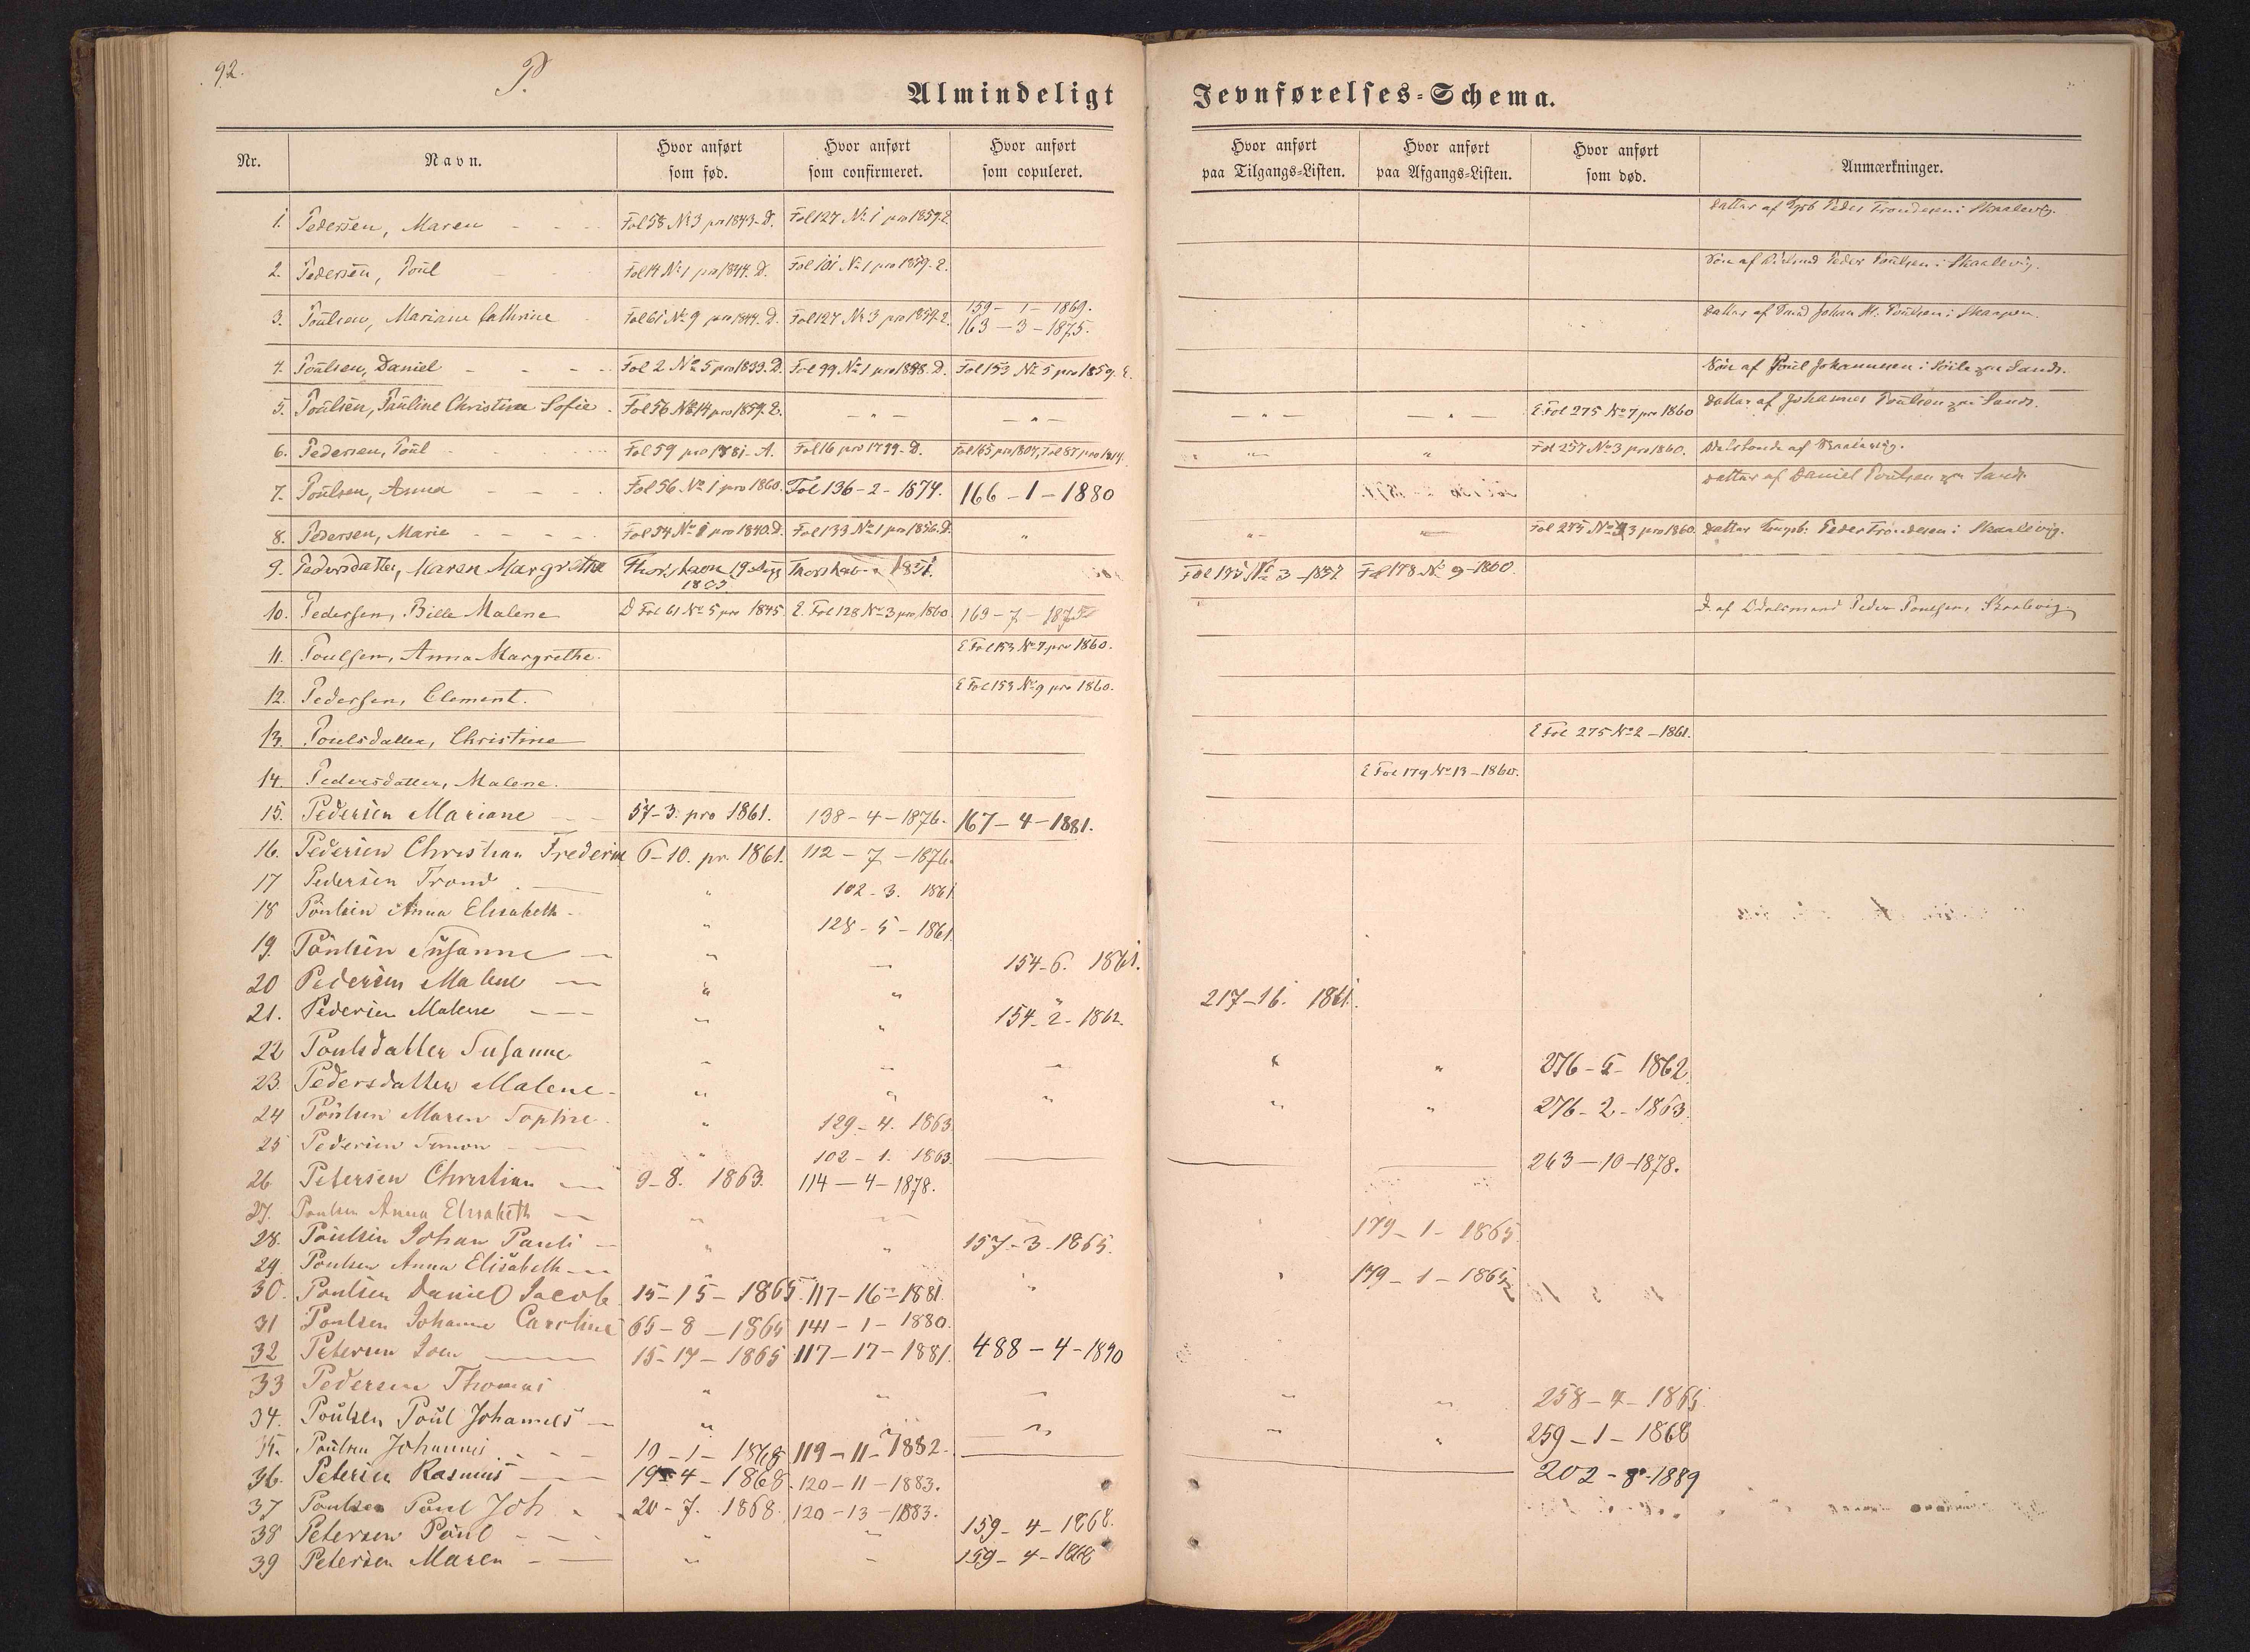 92.
P.
Almindeligt Jevnførelses-Schema.
Nr. Navn. Hvor anført som fød. Hvor anført som confirmeret. Hvor anført som copuleret. Hvor anført paa Tilgangs-Listen. Hvor anført paa Afgangs-Listen. Hvor anført som død. Anmærkninger.
1. Pedersen, Maren Fol 58 No 3 pro 1843-D. Fol 127 No 1 pro 1859.E. Datter af Peder Trondesen i Skaalevig.
2. Pedersen, Poul Fol 14 No 1 pro 1844. D. Fol 101 No 1 pro 1859. E. Søn af Peder Poulsen i Skaalevig.
3. Poulsen, Mariane Cathrine Fol 61 No 9 pro 1844. D. Fol 127 No 3 pro 1859. E. 159 - 1 - 1869.
163 - 3 - 1875. Datter af Johan M. Poulsen i Skarpen.
4. Poulsen, Daniel Fol 2 No 5 pro 1833. D. Fol 99 No 1 pro 1848. D. Fol 153 No 5 pro 1859. E. Søn af Poul Johannesen i Sand.
5. Poulsen, Pauline Christine Sofie Fol 56 No 14 pro 1859. E. - " - - " - - " - - " - E. Fol 275 No 7 pro 1860 Datter af Johannes Poulsen i Sand.
6. Pedersen, Poul Fol 59 pro 1781 - A. Fol 16 pro 1799 - D. Fol 165 pro 1807, Fol 87 pro 1814. Fol 257 No 3 pro 1860. Odelsbonde af Skaalevig.
7. Poulsen, Anna Fol 56 No 1 pro 1860. Fol 136 - 2 - 1874. 166 - 1 - 1880 Datter af Daniel Poulsen Sand.
8. Pedersen, Marie Fol 54 No 1 pro 1840. D. Fol 133 No 1 pro 1856. D. " Fol 275 No 3 pro 1860. Datter Kongsb. Peder Trondesen i Skaalevig.
9. Pedersdatter, Maren Margrethe Thorshavn 19 Aug
1803 Thorshavn 1831. No 3 - 1857 Fol 178 No 9 - 1860.
10. Pedersen, Bille Malene D Fol 61 No 5 pro 1845 E. Fol 128 No 3 pro 1860. 163 - 7 - 1875 D. af Odelsmand Peder Poulsen, Skaalevig.
11. Poulsen, Anna Margrethe. E Fol 153 No 7 pro 1860.
12. Pedersen, Clement. E Fol 153 No 9 pro 1860.
13. Poulsdatter, Christine E Fol 275 No 2 - 1861.
14. Pedersdatter, Malene. E Fol 179 No 13 - 1860.
15. Pedersen Mariane 57 - 3. pro 1861. 138 - 4 - 1876. 167 - 4 - 1881.
16. Pedersen Christian Frederik 6 - 10. pr. 1861. 112 - 7 - 1876.
17 Pedersen Trond " 102 - 3. 1861
18 Poulsen Anna Elisabeth " 128 - 5 - 1861.
19. Poulsen Susanne " 154 - 6. 1861.
20 Pedersen Malene " " 217 - 16. 1861.
21. Pedersen Malene " " 154 - 2 - 1862.
22 Poulsdatter Susanne " " 276 - 5 - 1862.
23. Pedersdatter Malene " " " " " 276 - 2 - 1863.
24 Poulsen Maren Sophie " 129 - 4. 1863
25 Pedersen Simon " 102 - 1. 1863. 263 - 10 - 1878.
26 Petersen Christian 9 - 8. 1863. 114 - 4 - 1878.
27. Poulsen Anna Elisabeth 179 - 1 - 1865.
28. Poulsen Johan Pauli " " 157 - 3 - 1865.
29. Poulsen Anna Elisabeth 179 - 1 - 1865
30. Poulsen Daniel Jacob 15 - 15 - 1865. 117 - 16 - 1881.
31 Poulsen Johanne Caroline 65 - 8 - 1865 141 - 1 - 1880.
32 Petersen Joen 15 - 17 - 1865 117 - 17 - 1881. 488 - 4 - 1890
33 Pedersen Thomas " " " " 258 - 4 - 1865
34. Poulsen Poul Johannes " " " 259 - 1 - 1868
35. Poulsen Johannes 19 - 1 - 1868 119 - 11 - 1882. 202 - 8 - 1889
36. Petersen Rasmus 19 - 4 - 1868. 120 - 11 - 1883.
37 Poulsen Poul Joh 20 - 7. 1868. 120 - 13 - 1883.
38 Petersen Poul " " 159 - 4 - 1868.
39 Petersen Maren " 159 - 4 - 1868